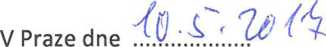 V Praze dne 10.5.2017